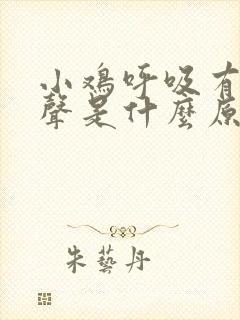 小鸡呼吸有
聲是什麼原
朱藝丹